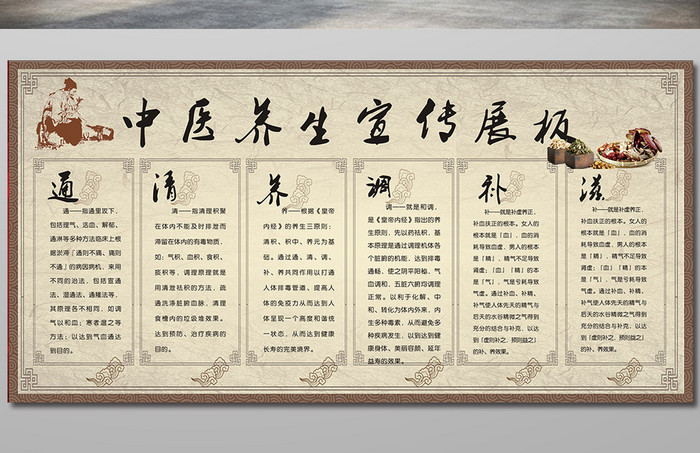 中医养生宣传展板
通
通——指通里攻下，
包括理气、活血、解郁、
通淋等多种方法临床上根
据淤滞「通则不痛、痛则
不通」的病因病机，来用
不同的治法，包括宣通
法、湿通法、通幽法等，
其原理各不相同，如调
气以和血；寒者温之等
方法：以达到气血通达
到目的。
清
清——指清理积聚
在体内不能及时排泄而
滞留在体内的有毒物质，
如：气积、血积、食积、
痰积等，调理原理就是
用清泄祛积的方法，疏
通洗涤脏腑血脉，清理
食槽内的垃圾堆效果。
达到预防、治疗疾病的
目的。
养
养——根据《皇帝
内经》的养生三原则：
清积、积中、养元为基
础。通过通、清、调、
补、养共同作用以打通
人体排毒管道、提高人
体的免疫力从而达到人
体呈现一个高度和谐统
一状态，从而达到健康
长寿的完美境界。
调
调——就是和调，
是《皇帝内经》指出的养
生原则，先以药祛积，基
本原理是通过调理机体各
个脏腑的机能，达到排毒
通畅、使之阴平阳秘，气
血调和，五脏六腑均调理
正常。以利于化解、中
和、转化为体内外来，内
生多种毒素，从而避免多
种疾病发生，以到达到健
康身体、美丽容颜、延年
益寿的效果。
补
补——就是补虚养正，
补血扶正的根本。女人的
根本就是「血」，血的消
耗导致血虚，男人的根本
是「精」，精气不足导致
肾虚；「血」「精」的本
是「气」，气是亏耗导致
气虚。通过补血、补精、
补气使人体先天的精气与
后天的水谷精微之气得到
充分的结合与补充，以达
到「虚则补之，预则益之」
的补、养效果。
滋
补——就是补虚养正，
补血扶正的根本。女人的
根本就是「血」，血的消
耗导致血虚，男人的根本
是「精」，精气不足导致
肾虚；「血」「精」的本
是「气」，气是亏耗导致
气虚。通过补血、补精、
补气使人体先天的精气与
后天的水谷精微之气得到
充分的结合与补充，以达
到「虚则补之，预则益之」
的补、养效果。